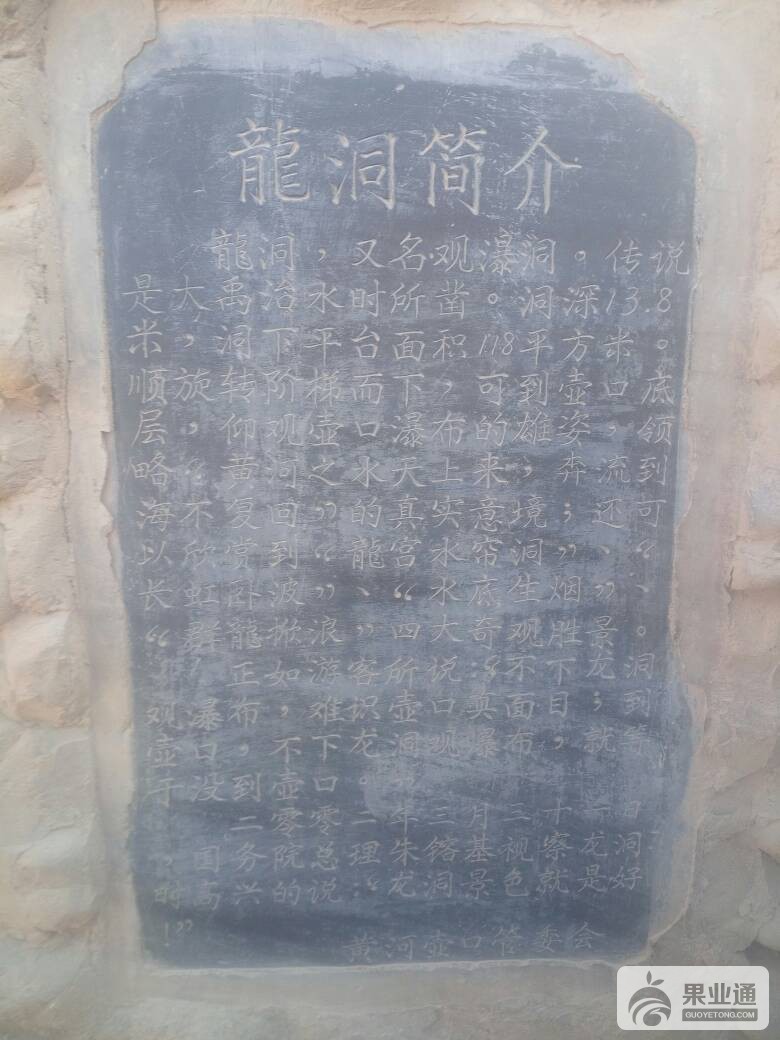 龍洞简介
龍洞，又名观瀑洞。传说
是大禹治水时所凿。洞深13.8
米，洞下平台面积118平方米。
顺旋转阶梯而下，可到壶口底
层，仰观壶口瀑布的雄姿，领
略“黄河之水天上来，奔流到
海不复回”的真实意境；还可
以欣赏到“龍宫水帘洞”、“
长虹卧波”、“水底生烟”、
“群龍掀浪”四大奇观胜景。
正如游客所说：“不下龙洞
观瀑布，难识壶口真面目；到
壶口，不下龙洞观瀑布，就等
于没到壶口。”
二零零二年三月三十一日
，国务院总理朱镕基视察龙洞
时高兴的说：“龙洞景色就是好
！”
黄河壶口管委会
果业通
GUOYETONG.COM